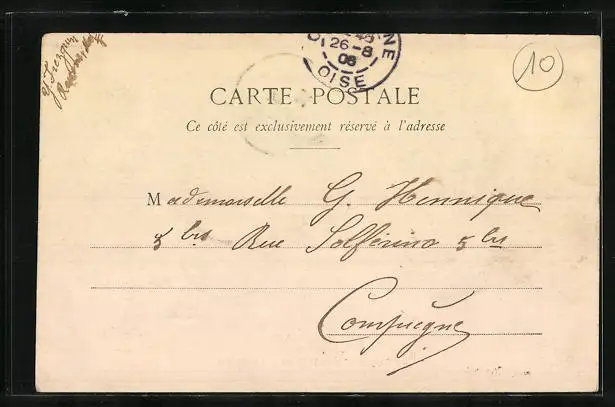 NE
26-8
06
OISE
10
CARTE POSTALE
Ce côté est exclusivement réservé à l'adresse
Mademoiselle G. Hennique
5 bis Rue Solférino 5 bis
Compiègne